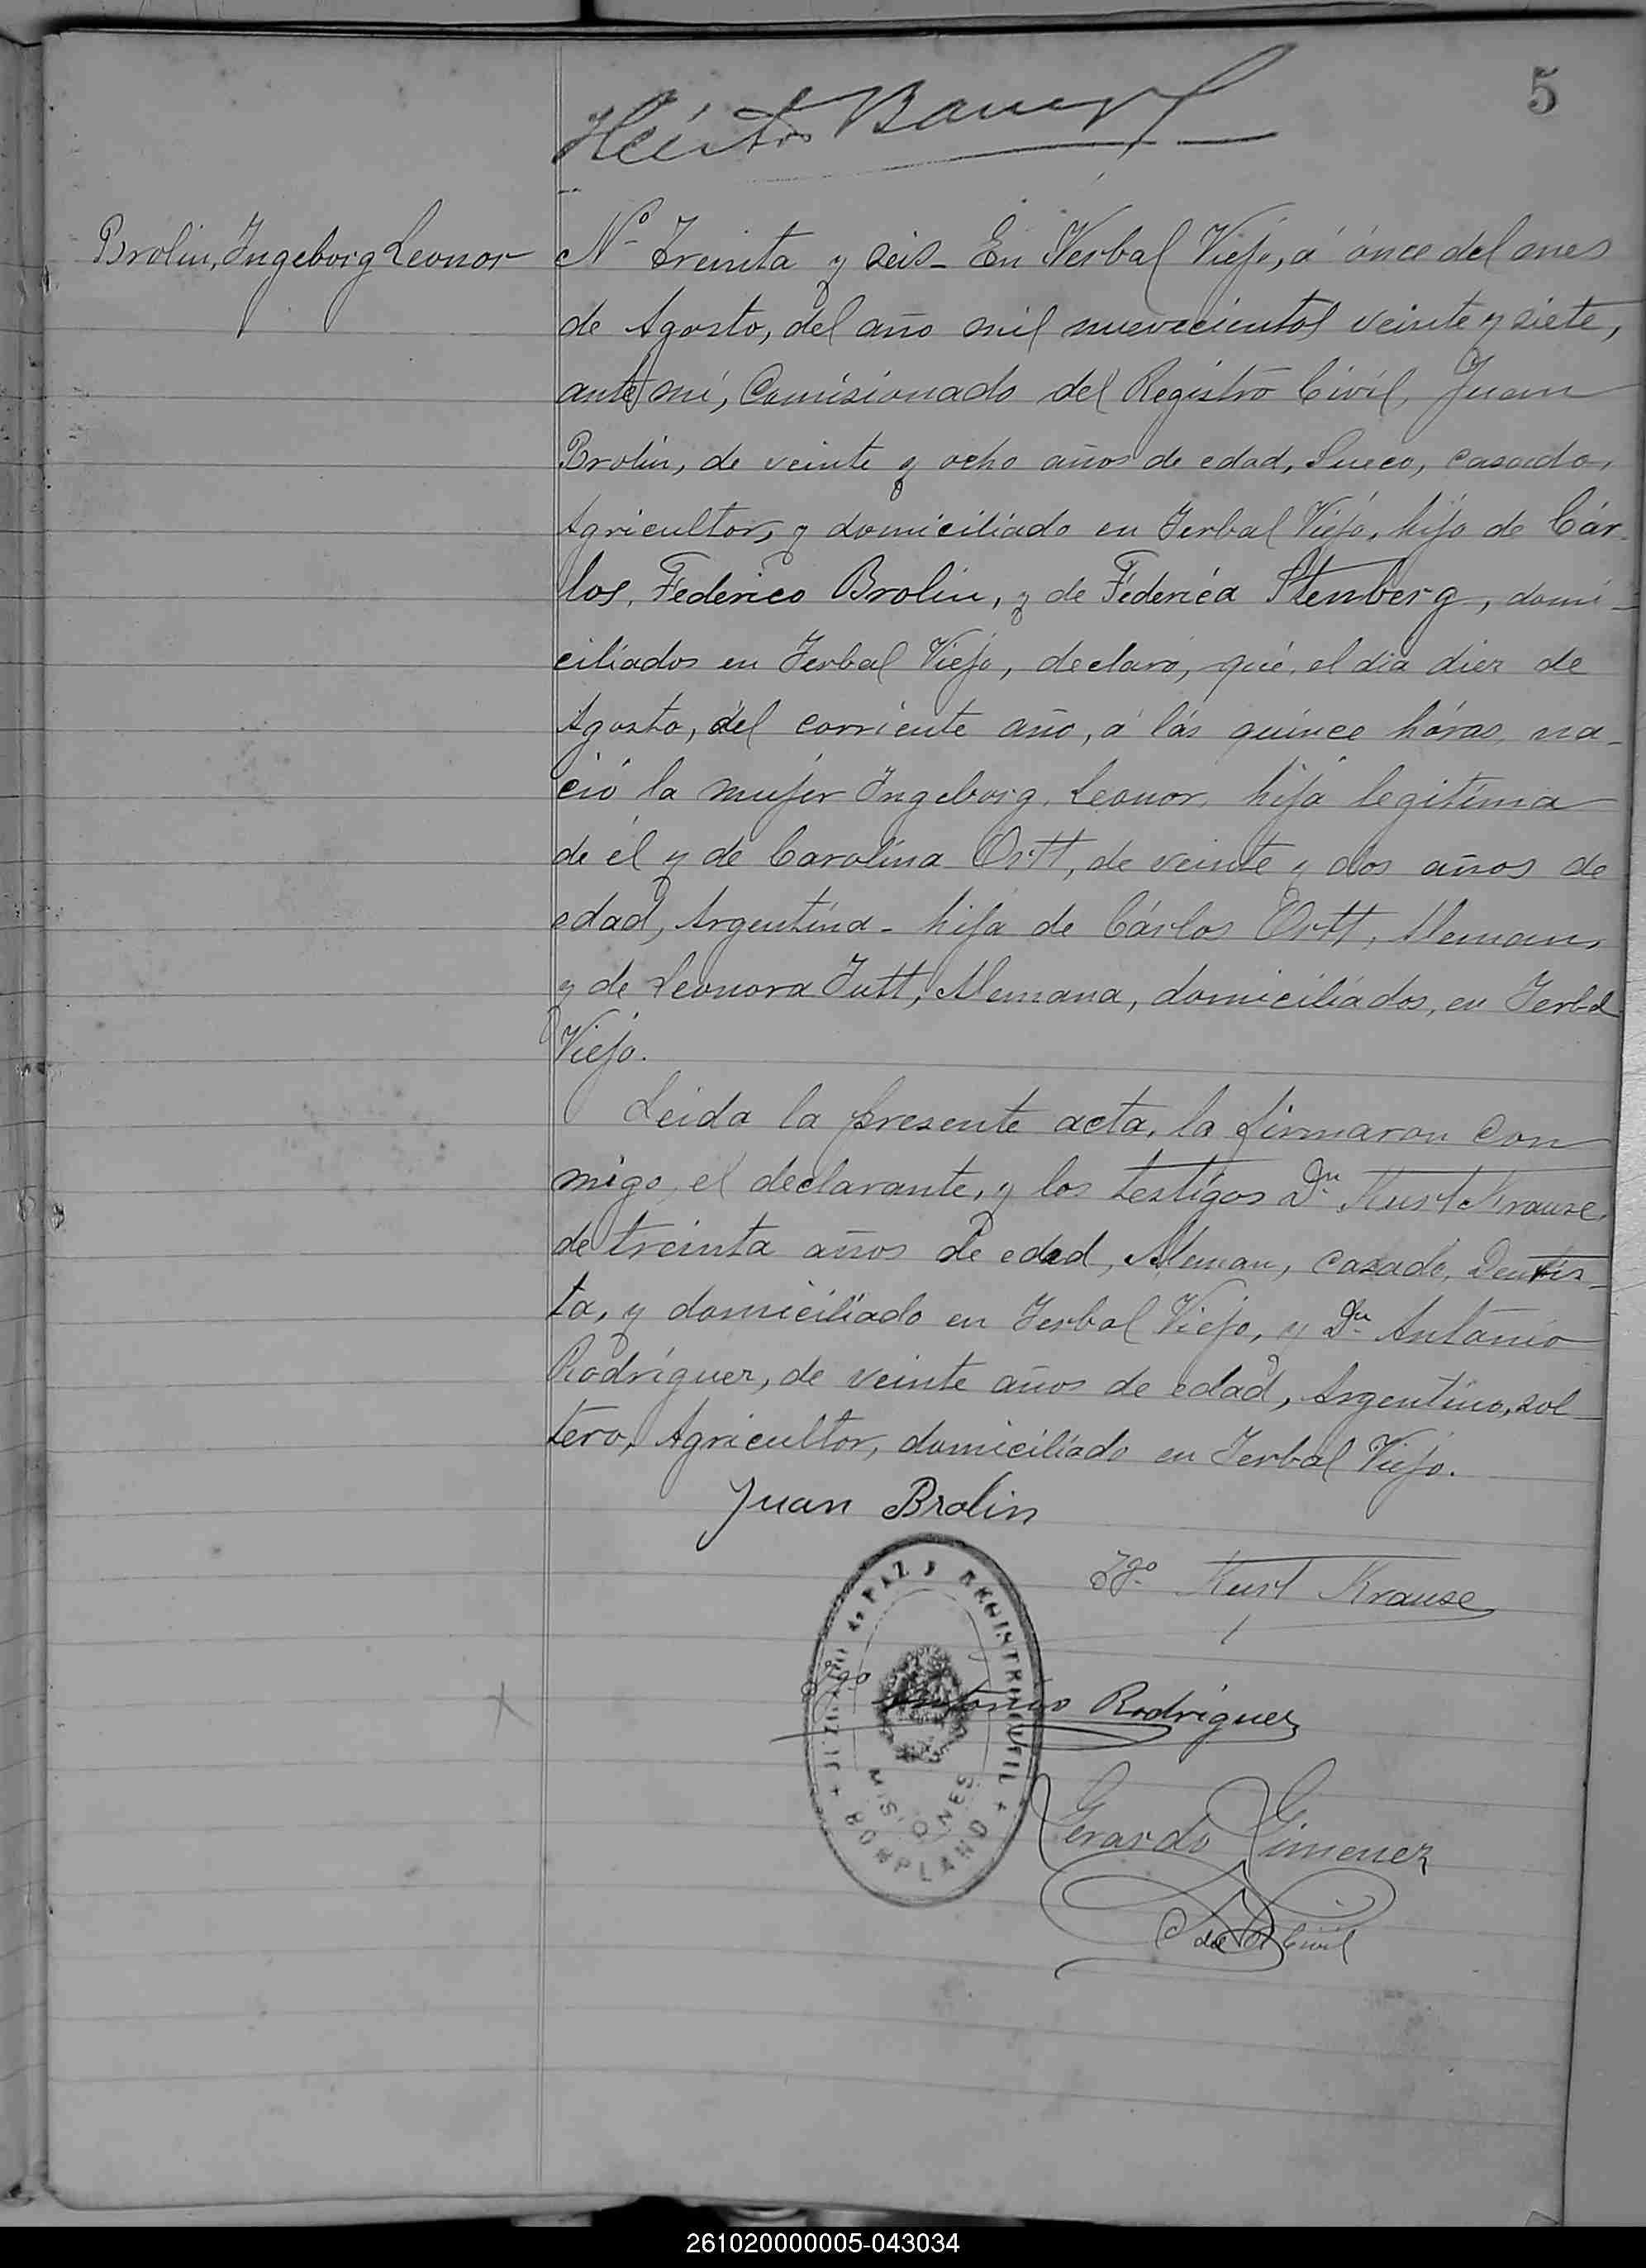 5
Brolin, Ingeborg Leonor
Nº Treinta y seis - En Yerbal Viejo, á ónce del mes
de Agosto, del año mil nuevecientos veinte y siete,
ante mí, Comisionado del Registro Civil, Juan
Brolin, de veinte y ocho años de edad, Sueco, casado,
Agricultor, y domiciliado en Yerbal Viejo, hijo de Cár-
los, Federico Brolin, y de Féderica Stenberg, domi-
ciliados en Yerbal Viejo, declaro, qué, el dia diez de
Agosto, del corriente año, á lás quince hóras, na-
ció la mujer Ingeborg, Leonor, hija legitima
de él y de Carolina Ortt, de veinte y dos años de
edad, Argentina - hija de Cárlos Ortt, Aleman,
y de Leonora Jutt, Alemana, domiciliados, en Yerbal
Viejo.
Leida la presente acta, la firmaron con
migo, el declarante, y los testigos Dn. Kurt Krause,
de treinta años de edad, Aleman, casado, Dentis-
ta, y domiciliado en Yerbal Viejo, y Dn. Antonio
Rodríguez, de veinte años de edad, Argentino, sol-
tero, Agricultor, domiciliado en Yerbal Viejo.
Juan Brolin
Tgo. Kurt Krause
Tgo Antonio Rodriguez
JUZGADO de PAZ y REGISTRO CIVIL
MISIONES
BONPLAND
Gerardo Gimenez
C de R Civil
261020000005-043034